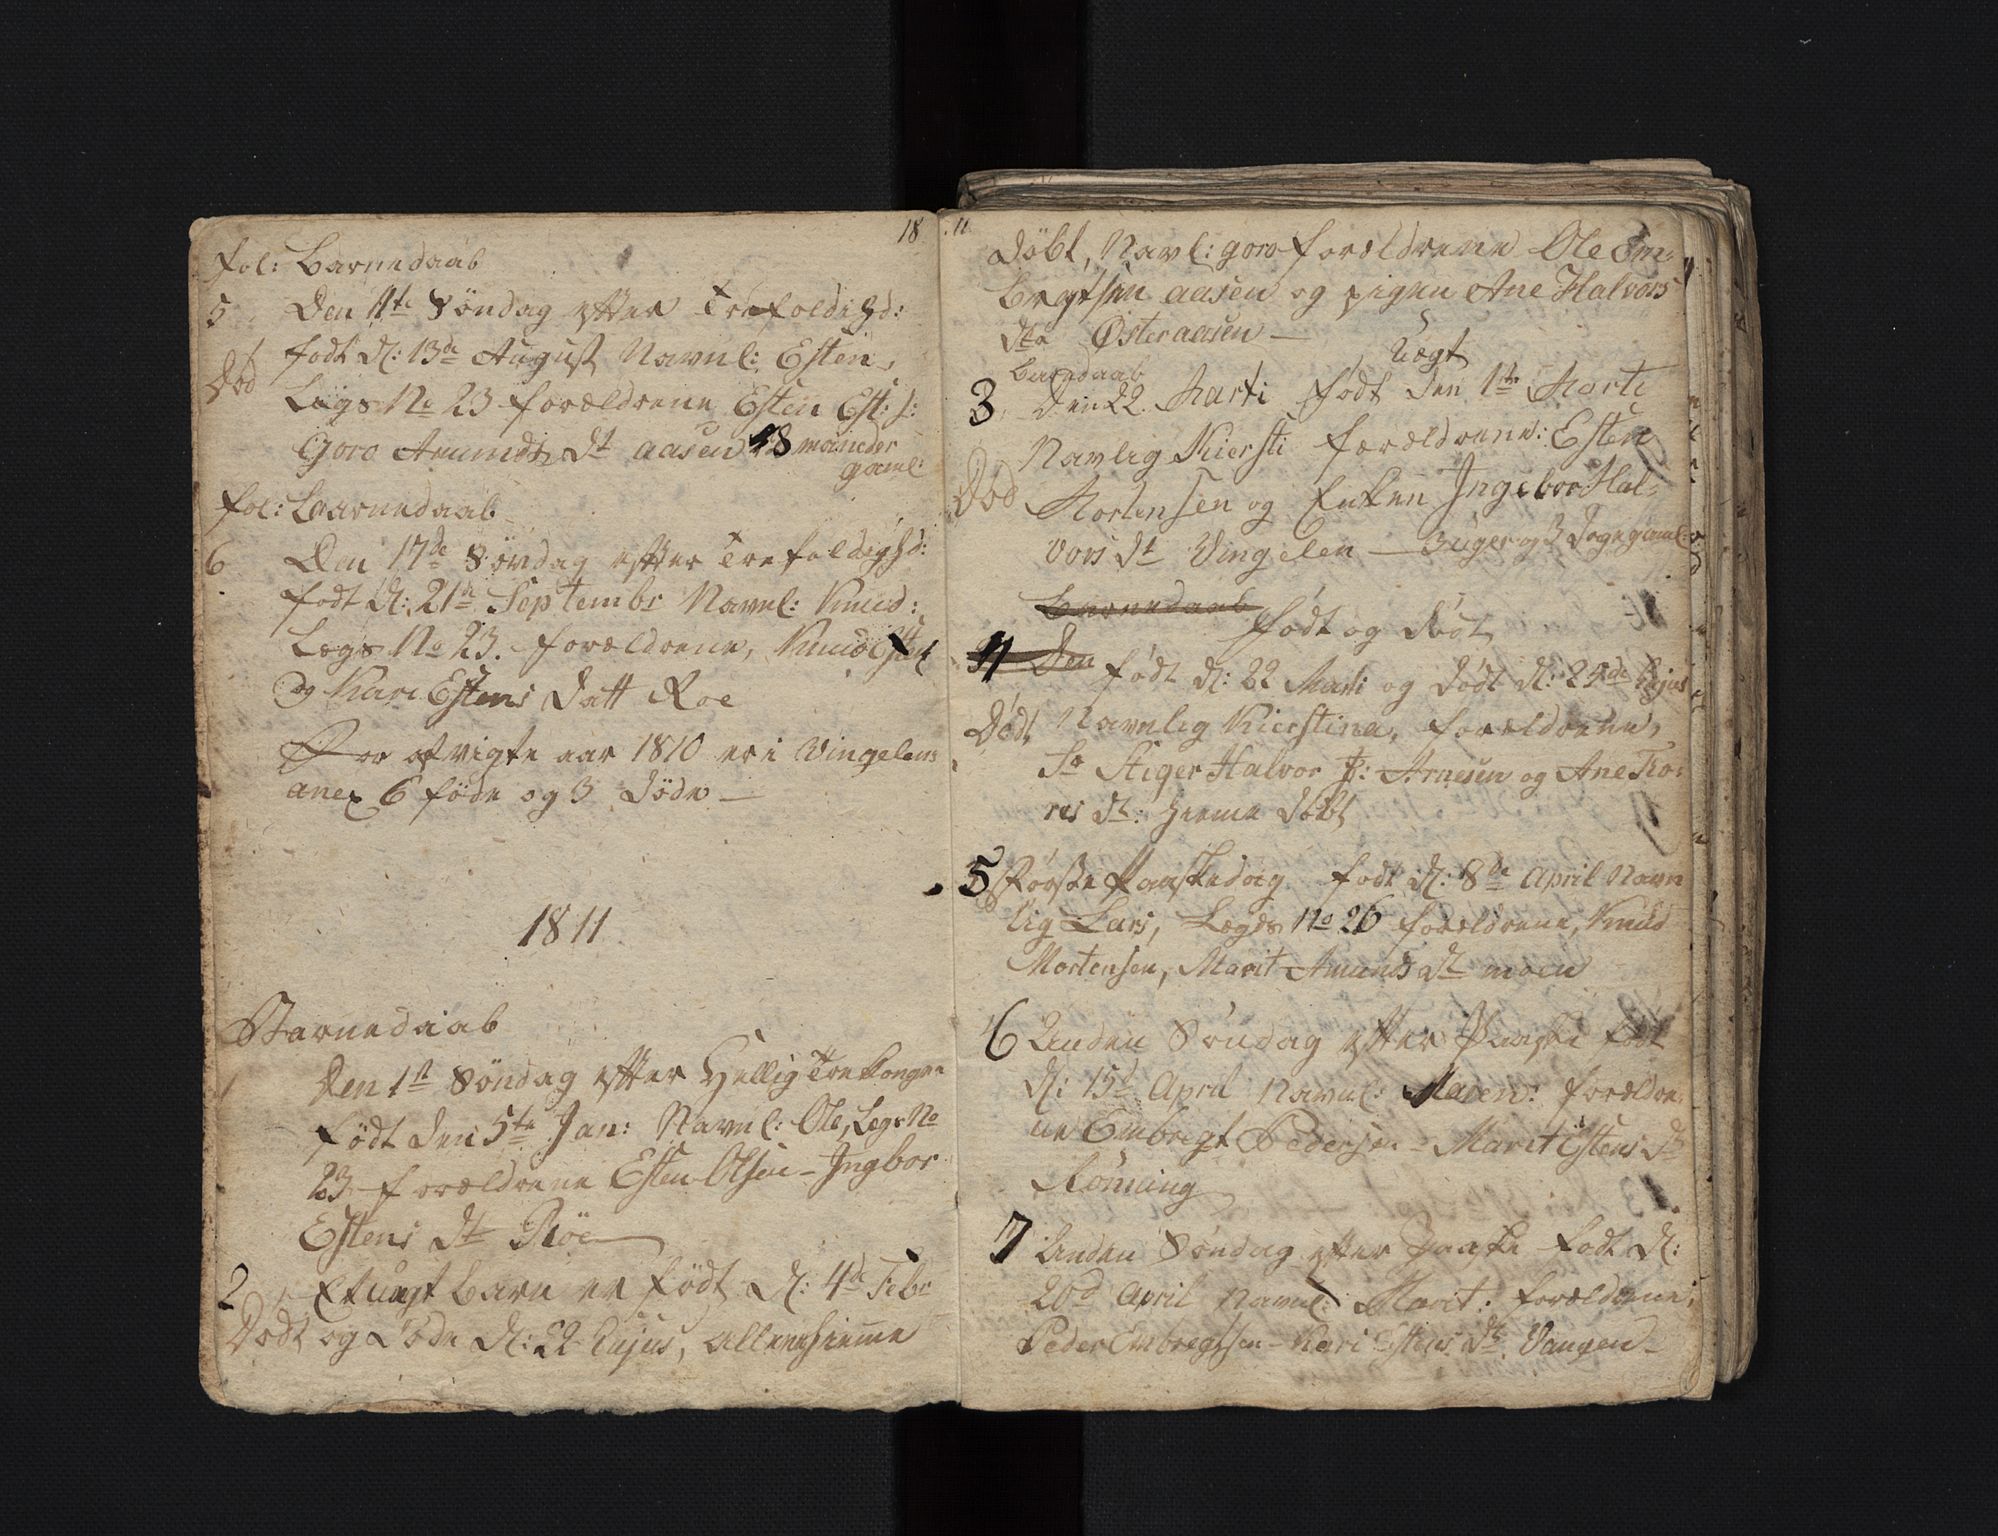 18
fol: Barnedaab
5 Den 11te Söndag efter Trefoldighd:
födt d: 13de August Navnl: Esten,
Död
Lægs No 23 forældrene Esten Est: s:
Goro Amunds Dt aasen 18 maaneder
gaml:
fol: Barnedaab
6 Den 17de Söndag efter Trefoldighd:
födt d: 21de Septembr Navnl: Knud:
Lægs No 23. forældrene, Knud Esten
og Kari Estens Datt Roe
For afvigte aar 1810 er i Vingelens
anex 6 föde og 3 döde —
1811
Barnedaab
1 Den 1st Söndag efter Hellig Trekonger
födt den 5te Jan: Navnl: Ole, Lægs No
23 forældrene Esten Olsen – Ingbor
Estens Dt Röe
2 Et uægt barn er födt d: 4de Febr
Dödt og döde d: 22 hujus, allene hieme
11
döbt, Navnl: goro forældrene Ole Em-
bregtsen aasen og pigen Ane Halvors
dtr Österaasen —
uægt
Barnedaab
3 Den 22 Marti födt den 1te Marti
Navnlig Kiersti forældrene: Esten
Död
Mortensen og Enken Ingebor Hal-
vors Dt Vingelen — 3 uger og 3 Dage gaml:
Barnedaab födt og död
4 Den födt d: 22 Marti og dödt d: 25de hujus
Dödt Navnlig Kierstina, forældrene,
Stiger Halvor Arnesen og Ane To-
res Dt: hieme döbt
5 Förste Paaskedag födt d: 8de April Navn
lig Lars, Lægds No 26 forældrene, Knud
Mortensen, Marit Amunds Dt moen
6 Anden Söndag efter Paaske födt
d: 15d April Navnl: Maren: forældre-
ne Embregt Pedersen – Marit Estens Dt
Römoing
7 Anden Söndag efter Paaske födt d:
20d April Navnl: Marit: forældrene,
Peder Embregtsen – Kari Estens Dt. Vangen –